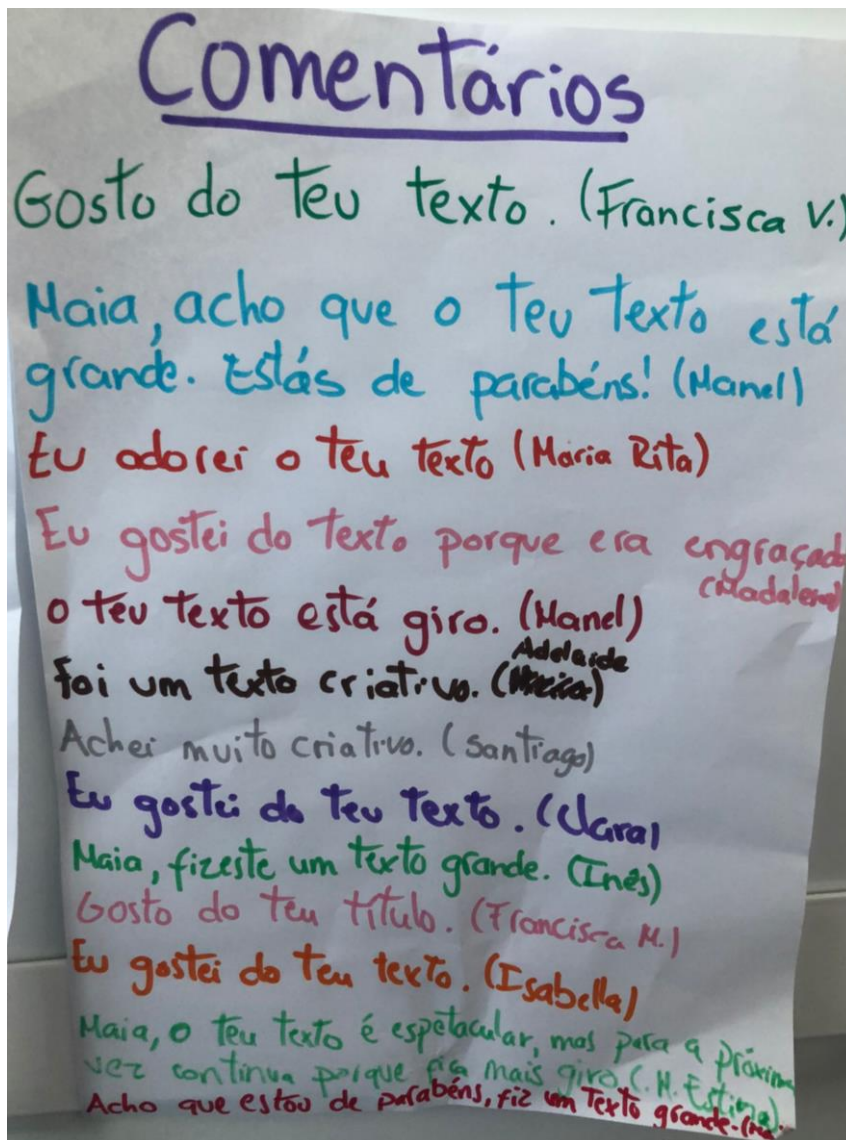 Comentários
Gosto do teu texto. (Francisca V.)
Maia, acho que o teu texto está
grande. Estás de parabéns! (Manel)
Eu adorei o teu texto (Maria Rita)
Eu gostei do texto porque era engraçado
(Madalena)
o teu texto está giro. (Manel)
Adelaide
Foi um texto criativo. ( )
Achei muito criativo. (Santiago)
Eu gostei do teu texto. (Clara)
Maia, fizeste um texto grande. (Inês)
Gosto do teu título. (Francisca M.)
Eu gostei do teu texto. (Isabella)
Maia, o teu texto é espetacular, mas para a próxima
vez continua porque fica mais giro (. M. Estima).
Acho que estou de parabéns, fiz um Texto grande.